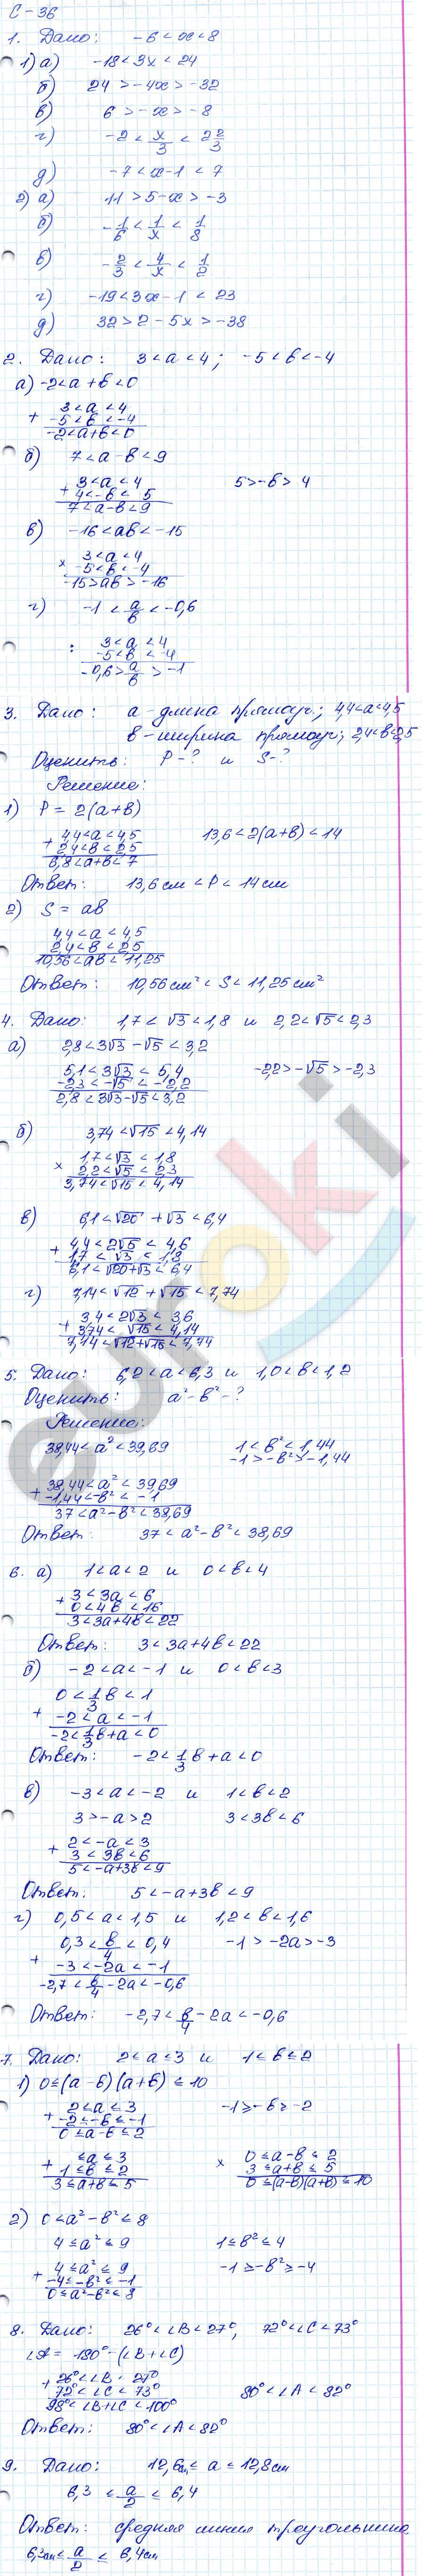 С-36
1. Дано: -6 < x < 8
1) а) -18 < 3x < 24
б) 24 > -4x > -32
в) 6 > -x > -8
г) -2 < x/3 < 2 2/3
д) -7 < x-1 < 7
2) а) 11 > 5-x > -3
б) -1/6 < 1/x < 1/8
в) -2/3 < 4/x < 1/2
г) -19 < 3x-1 < 23
д) 32 > 2-5x > -38
2. Дано: 3 < a < 4; -5 < b < -4
а) -2 < a+b < 0
+ 3 < a < 4
-5 < b < -4
-2 < a+b < 0
б) 7 < a-b < 9
+ 3 < a < 4 5 > -b > 4
4 < -b < 5
7 < a-b < 9
в) -16 < ab < -15
× 3 < a < 4
-5 < b < -4
-15 > ab > -16
г) -1 < a/b < -0,6
: 3 < a < 4
-5 < b < -4
-0,6 > a/b > -1
3. Дано: a - длина прямоуг.; 4,4 < a < 4,5
b - ширина прямоуг.; 2,4 < b < 2,5
Оценить: P-? и S-?
Решение:
1) P = 2(a+b)
+ 4,4 < a < 4,5 13,6 < 2(a+b) < 14
2,4 < b < 2,5
6,8 < a+b < 7
Ответ: 13,6 см < P < 14 см
2) S = ab
4,4 < a < 4,5
2,4 < b < 2,5
10,56 < ab < 11,25
Ответ: 10,56 см² < S < 11,25 см²
4. Дано: 1,7 < √3 < 1,8 и 2,2 < √5 < 2,3
а) 2,8 < 3√3 - √5 < 3,2
5,1 < 3√3 < 5,4 -2,2 > -√5 > -2,3
-2,3 < -√5 < -2,2
2,8 < 3√3-√5 < 3,2
б) 3,74 < √15 < 4,14
× 1,7 < √3 < 1,8
2,2 < √5 < 2,3
3,74 < √15 < 4,14
в) 6,1 < √20 + √3 < 6,4
+ 4,4 < 2√5 < 4,6
1,7 < √3 < 1,8
6,1 < √20+√3 < 6,4
г) 7,14 < √12 + √15 < 7,74
+ 3,4 < 2√3 < 3,6
3,74 < √15 < 4,14
7,14 < √12+√15 < 7,74
5. Дано: 6,2 < a < 6,3 и 1,0 < b < 1,2
Оценить: a² - b² - ?
Решение:
38,44 < a² < 39,69 1 < b² < 1,44
-1 > -b² > -1,44
+ 38,44 < a² < 39,69
-1,44 < -b² < -1
37 < a²-b² < 38,69
Ответ: 37 < a²-b² < 38,69
6. а) 1 < a < 2 и 0 < b < 4
+ 3 < 3a < 6
0 < 4b < 16
3 < 3a+4b < 22
Ответ: 3 < 3a+4b < 22
б) -2 < a < -1 и 0 < b < 3
0 < 1/3 b < 1
+ -2 < a < -1
-2 < 1/3 b + a < 0
Ответ: -2 < 1/3 b + a < 0
в) -3 < a < -2 и 1 < b < 2
3 > -a > 2 3 < 3b < 6
+ 2 < -a < 3
3 < 3b < 6
5 < -a+3b < 9
Ответ: 5 < -a+3b < 9
г) 0,5 < a < 1,5 и 1,2 < b < 1,6
0,3 < b/4 < 0,4 -1 > -2a > -3
+ -3 < -2a < -1
-2,7 < b/4 - 2a < -0,6
Ответ: -2,7 < b/4 - 2a < -0,6
7. Дано: 2 ≤ a ≤ 3 и 1 ≤ b ≤ 2
1) 0 ≤ (a-b)(a+b) ≤ 10
+ 2 ≤ a ≤ 3 -1 ≥ -b ≥ -2
-2 ≤ -b ≤ -1
0 ≤ a-b ≤ 2
+ ≤ a ≤ 3 × 0 ≤ a-b ≤ 2
1 ≤ b ≤ 2 3 ≤ a+b ≤ 5
3 ≤ a+b ≤ 5 0 ≤ (a-b)(a+b) ≤ 10
2) 0 ≤ a²-b² ≤ 8
4 ≤ a² ≤ 9 1 ≤ b² ≤ 4
+ 4 ≤ a² ≤ 9 -1 ≥ -b² ≥ -4
-4 ≤ -b² ≤ -1
0 ≤ a²-b² ≤ 8
8. Дано: 26° < ∠B < 27°, 72° < ∠C < 73°
∠A = 180° - (∠B+∠C)
+ 26° < ∠B < 27°
72° < ∠C < 73° 80° < ∠A < 82°
98° < ∠B+∠C < 100°
Ответ: 80° < ∠A < 82°
9. Дано: 12,6 см ≤ a ≤ 12,8 см
6,3 ≤ a/2 ≤ 6,4
Ответ: средняя линия треугольника
6,3 см ≤ a/2 ≤ 6,4 см
euroki